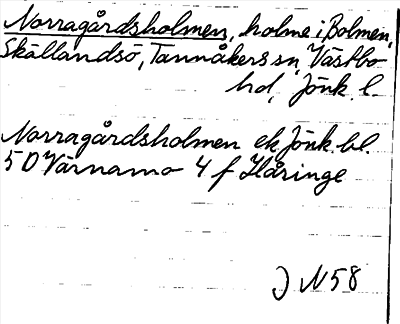 Norragårdsholmen, holme i Bolmen,
Skällandsö, Tannåkers sn, Västbo
hd, Jönk. l.
Norragårdsholmen ek Jönk. bl.
5 D Värnamo 4 f Håringe
J N58